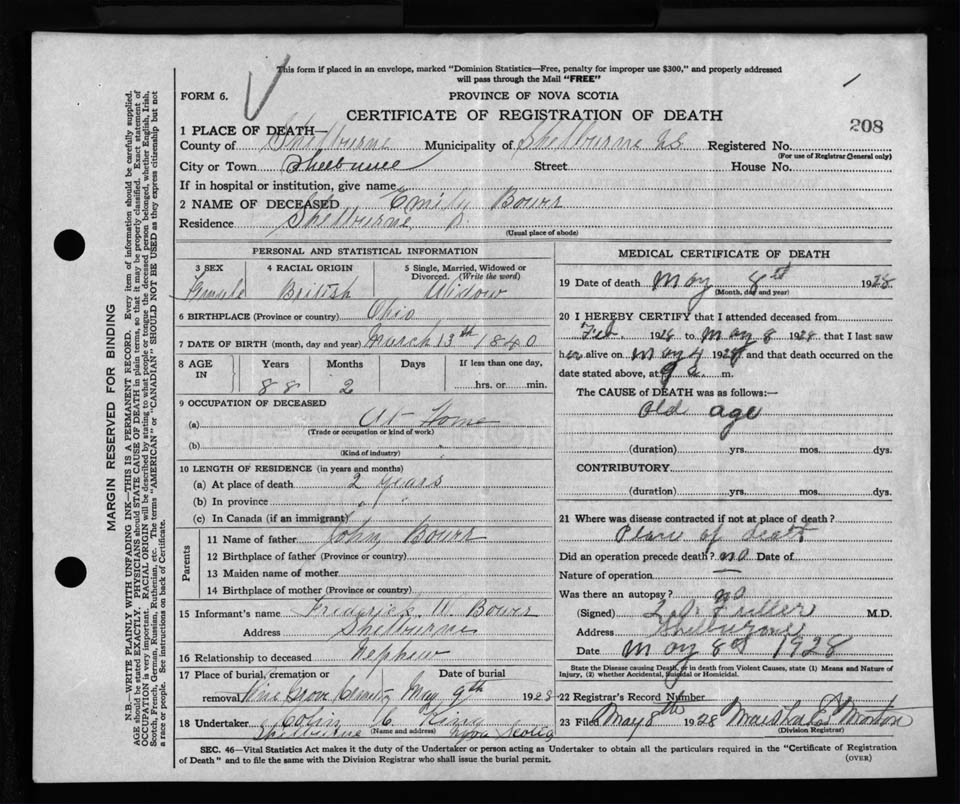 This form if placed in an envelope, marked "Dominion Statistics—Free, penalty for improper use $300," and properly addressed
will pass through the Mail "FREE"
FORM 6.
PROVINCE OF NOVA SCOTIA
CERTIFICATE OF REGISTRATION OF DEATH
208
1 PLACE OF DEATH—
County of Shelburne Municipality of Shelburne Registered No.
(For use of Registrar General only)
City or Town Shelburne Street House No.
If in hospital or institution, give name
2 NAME OF DECEASED Emily Bower
Residence Shelburne
(Usual place of abode)
PERSONAL AND STATISTICAL INFORMATION
3 SEX 4 RACIAL ORIGIN 5 Single, Married, Widowed or Divorced. (Write the word)
Female British Widow
6 BIRTHPLACE (Province or country) Ohio
7 DATE OF BIRTH (month, day and year) March 13th 1840
8 AGE IN Years Months Days If less than one day,
88 2 hrs. or min.
9 OCCUPATION OF DECEASED
(a) At Home
(Trade or occupation or kind of work)
(b)
(Kind of industry)
10 LENGTH OF RESIDENCE (in years and months)
(a) At place of death 2 years
(b) In province " "
(c) In Canada (if an immigrant)
Parents
11 Name of father John Bower
12 Birthplace of father (Province or country)
13 Maiden name of mother
14 Birthplace of mother (Province or country)
15 Informant's name Frederick W. Bower
Address Shelburne
16 Relationship to deceased Nephew
17 Place of burial, cremation or removal Date of burial
Pine Grove May 9th 1928
18 Undertaker Colin C. King
Shelburne (Name and address) Nova Scotia
MEDICAL CERTIFICATE OF DEATH
19 Date of death May 8th 1928
(Month, day and year)
20 I HEREBY CERTIFY that I attended deceased from
Feb. 1928 to May 8 1928 that I last saw
her alive on May 4 1928 and that death occurred on
date stated above, at 9 a. m.
The CAUSE of DEATH was as follows:—
Old age
(duration) yrs. mos. dys.
CONTRIBUTORY
(duration) yrs. mos. dys.
21 Where was disease contracted if not at place of death?
Place of death
Did an operation precede death? no Date of
Nature of operation —
Was there an autopsy? no
(Signed) Fuller M.D.
Address Shelburne
Date May 8th 1928
State the Disease causing Death, or in death from Violent Causes, state (1) Means and Nature of
Injury, (2) whether Accidental, Suicidal or Homicidal.
22 Registrar's Record Number
23 Filed May 8th 1928 Marsha E. Morton
(Division Registrar)
SEC. 46—Vital Statistics Act makes it the duty of the Undertaker or person acting as Undertaker to obtain all the particulars required in the "Certificate of Registration
of Death" and to file the same with the Division Registrar who shall issue the burial permit. (OVER)
MARGIN RESERVED FOR BINDING
N.B.—WRITE PLAINLY WITH UNFADING INK—THIS IS A PERMANENT RECORD. Every item of information should be carefully supplied.
AGE should be stated EXACTLY. PHYSICIANS should STATE CAUSE OF DEATH in plain terms, so that it may be properly classified. Exact statement of
OCCUPATION is very important. RACIAL ORIGIN will be described by stating to what people or tongue the deceased person belonged, whether English, Irish,
Scotch, French, German, Russian, Ruthenian, etc. The terms "AMERICAN" or "CANADIAN" SHOULD NOT BE USED as they express citizenship but not
a race or people. See instructions on back of Certificate.